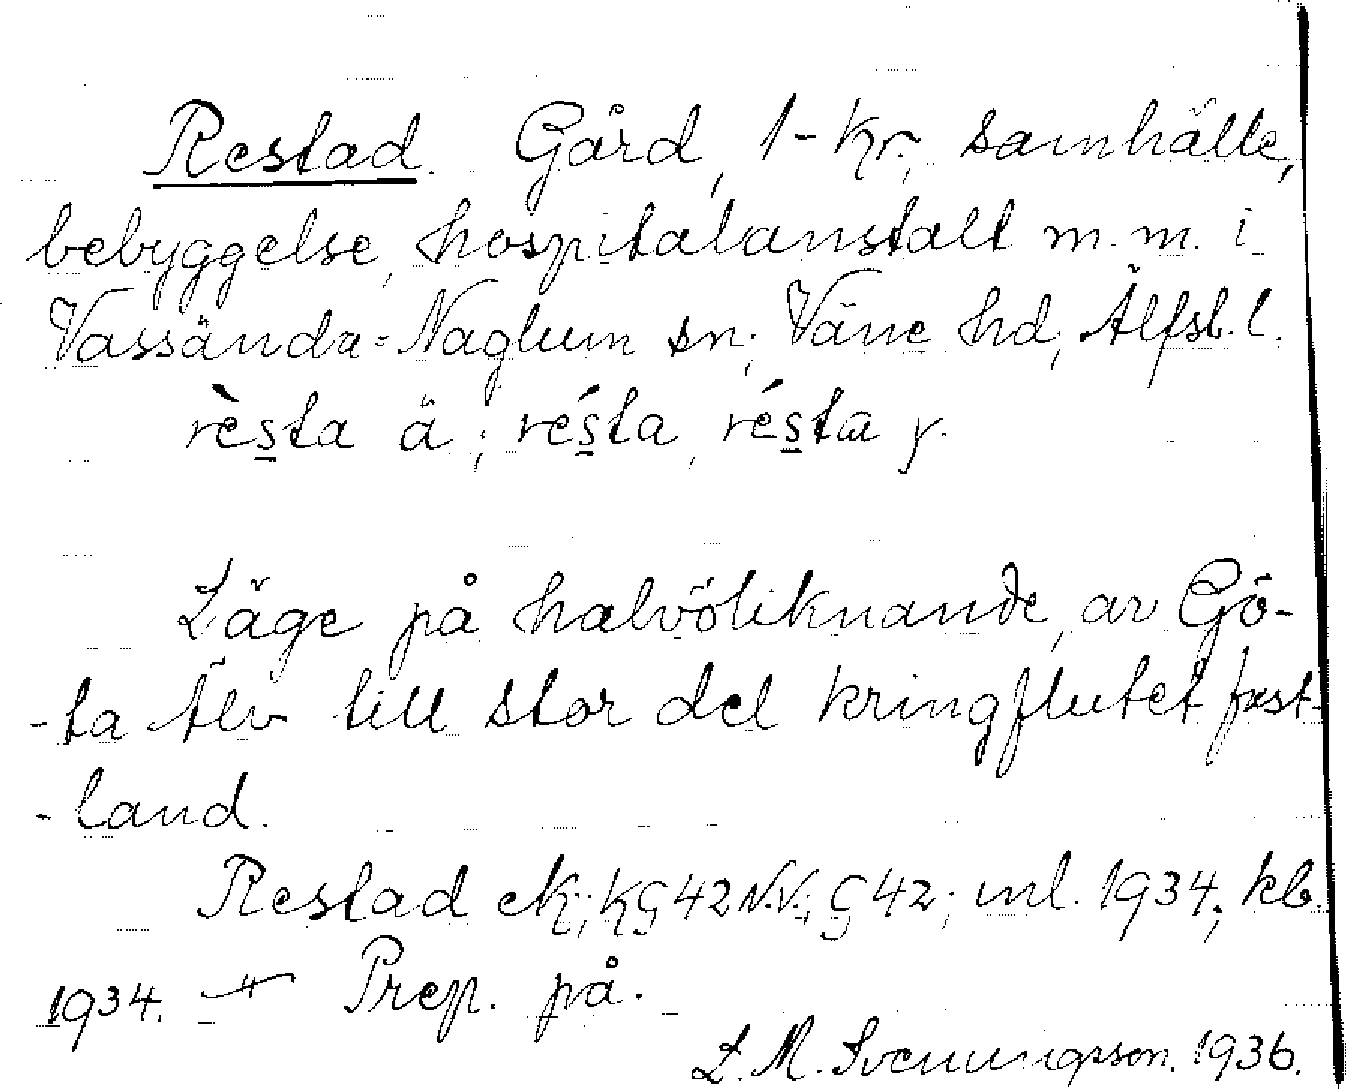 Restad. Gård, 1-kr., samhälle,
bebyggelse, hospitalanstalt m.m. i
Vassända-Naglum sn; Väne hd, Älfsb. l.
rèsta ä; résta, résta y.
Läge på halvöliknande, av Gö-
-ta Älv till stor del kringflutet fast-
-land.
Restad eK; KG 42 N.V.; G 42; ml. 1934; kb.
1934. Prep. på.
L. M. Svenungsson. 1936.